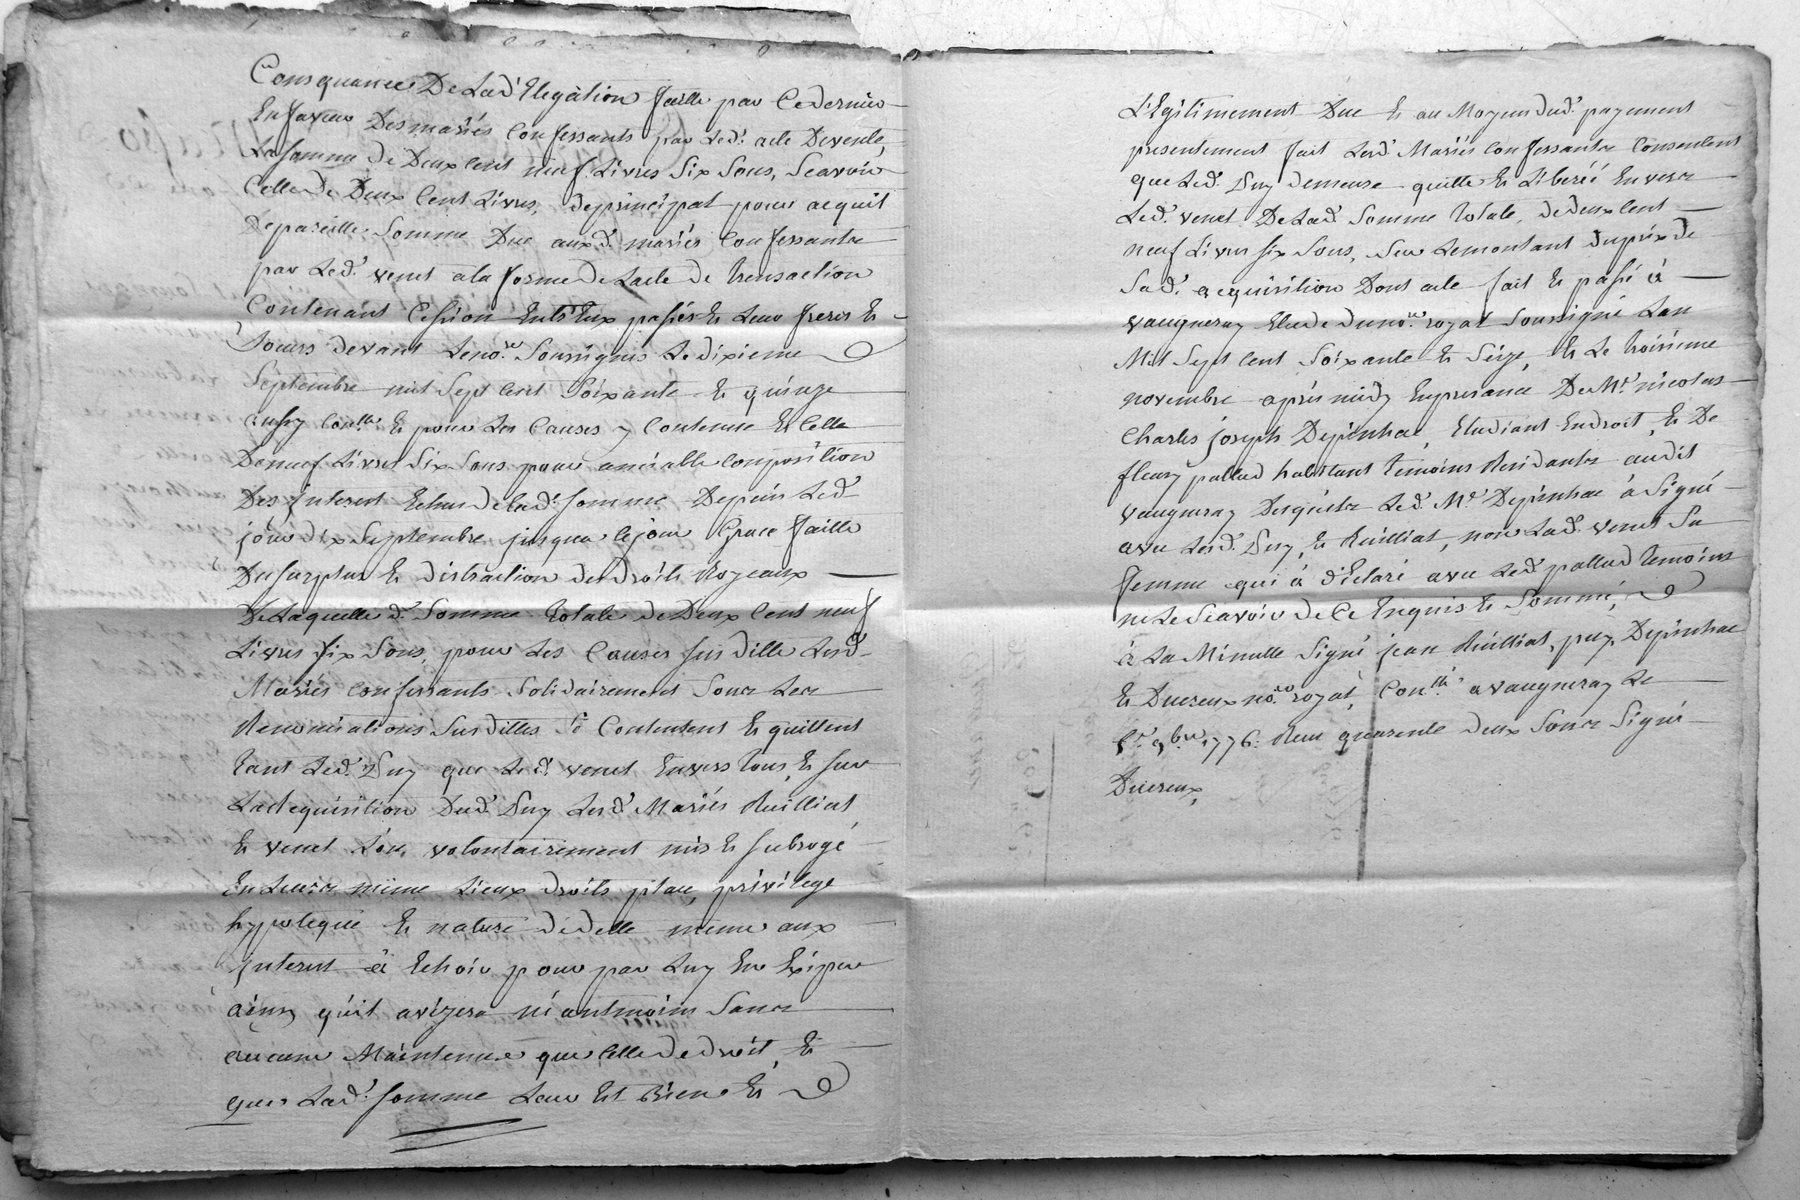 Consquance De Lad' Elegàtion faitte par Ce dernier
En faveur Des mariés Confessants par Led. acte De vente,
La somme de Deux Cent neuf Livres Six Sous, Scavoir
Celle de Deux Cent Livres, de principal pour acquit
De pareille Somme Due auxd. mariés Confessants
par Led. venet a la forme de Lacte de transaction
Contenant Cession Entr'Eux passés Et Leur freres Et
Soeurs devant Le no.re Soussignés Le dixieme
Septembre mil Sept Cent Soixante Et quinze
Con.llé Et pour Les Causes y Contenue Et Celle
De neuf Livres Six Sous pour amiable Composition
Des jnterest Echus de Lad. somme Depuis Led.
jour dix Septembre jusqua Ce jour Grace faitte
Du surplus Et distraction des droits Royeaux
De Laquelle d. Somme totale de Deux Cent neuf
Livres Six Sous, pour Les Causes sus ditte Lesd.
Mariés Confessants Solidairement Sous Les
Renonciations Susdittes Se Contentent Et quittent
tant Led. Puy que Led. venet Envers tous, Et sur
Ladequisition Dud. Puy Lesd. Mariés Ruilliat
Et venet L'ont volontairement mis Et subrogé
En Leurs même Lieux droits place, privilege
hypoteque Et nature de dette meme aux
jnterest à Echoir pour par Luy En Exiger
ainsy qu'il avizera né antmoins Sans
aucune Maintenue que Celle de droit, Et
que Lad. somme Leur Est Bien Et
L'Egitimement Due Et au Moyen dud. payement
presentement fait Lesd. Mariés Confessants Consentent
que Led. Puy demeure quitte Et Liberéé Envers
Led. venet De Lad. Somme totale, de deux Cent
neuf Livres six Sous, Sur Le montant du prix de
Sad. acquisition Dont acte fait Et passé à
vaugneray Etude du no.re royal Soussigné Lan
Mil Sept Cent Soixante Et Seize, Et Le troisieme
novembre après midy En presance De Mr. nicolas
Charles joseph Depinhac, Etudiant En droit, Et De
fleury pallud habittant temoins Residants audit
vaugneray Desquéls Led. Mr. Depinhac à Signé
avec Lesd. Puy, Et Ruilliat, non Lad. venet Sa
femme qui à d'Eclaré avec Led. pallud temoins
ne Le Scavoir de Ce Enquis Et Sommé,
à La Minutte Signé jean Ruilliat, puy, Depinhac
Et Ducreux no.re royal, Con.llé a vaugneray Le
9.bre 1776. Reçu quarente deux Sous Signé
Ducreux,